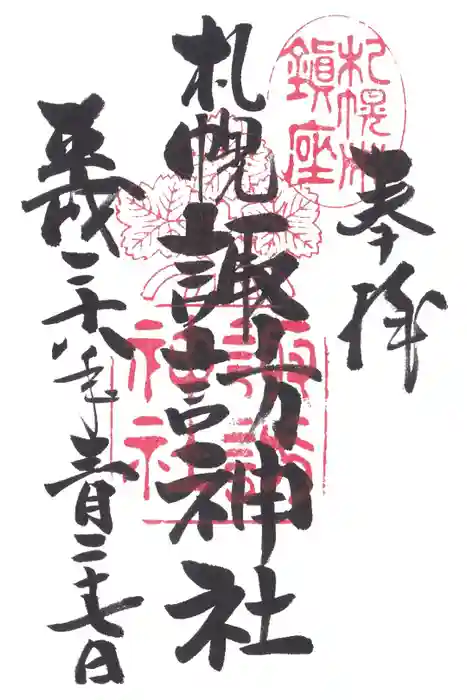 札幌
鎮座
奉拝
札幌諏訪神社
諏訪
神社
平成二十八年 月二十七日